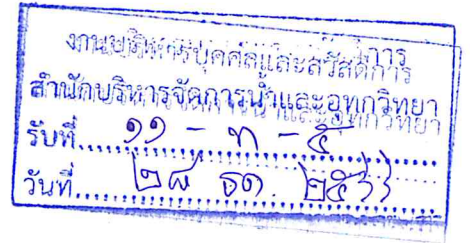 งานบริหารบุคคลและสวัสดิการ
สำนักบริหารจัดการน้ำและอุทกวิทยา
รับที่
วันที่ ๒๘ ธค. ๒๕